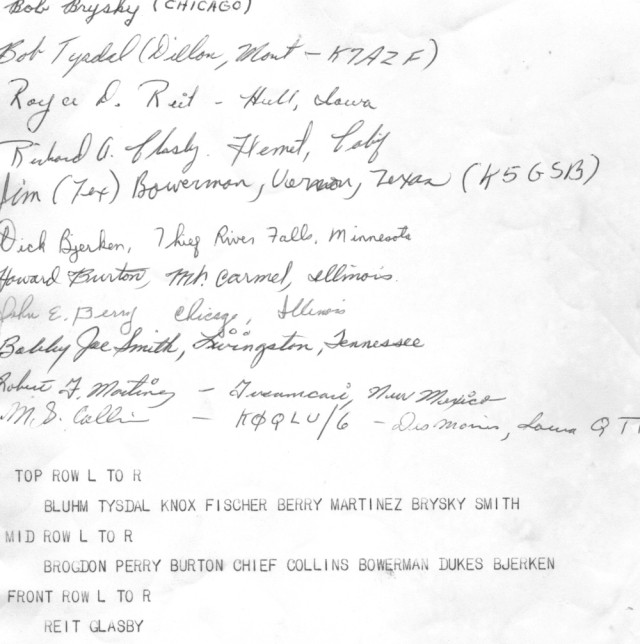 Bob Brysky (CHICAGO)
Bob Tysdal (Dillon, Mont - K7AZF)
Royce D. Reit - Hull, Iowa
Richard A. Glasby. Hemet, Calif
Jim (Tex) Bowerman, Vernon, Texas (K5GSB)
Dick Bjerken, Thief River Falls, Minnesota
Howard Burton, Mt. Carmel, Illinois.
John E. Berry Chicago, Illinois
Bobby Joe Smith, Livingston, Tennessee
Robert F. Martinez - Tucumcari, New Mexico
M. S. Collins - KØQLU/6 - Des Moines, Iowa Q T
TOP ROW L TO R
BLUHM TYSDAL KNOX FISCHER BERRY MARTINEZ BRYSKY SMITH
MID ROW L TO R
BROGDON PERRY BURTON CHIEF COLLINS BOWERMAN DUKES BJERKEN
FRONT ROW L TO R
REIT GLASBY